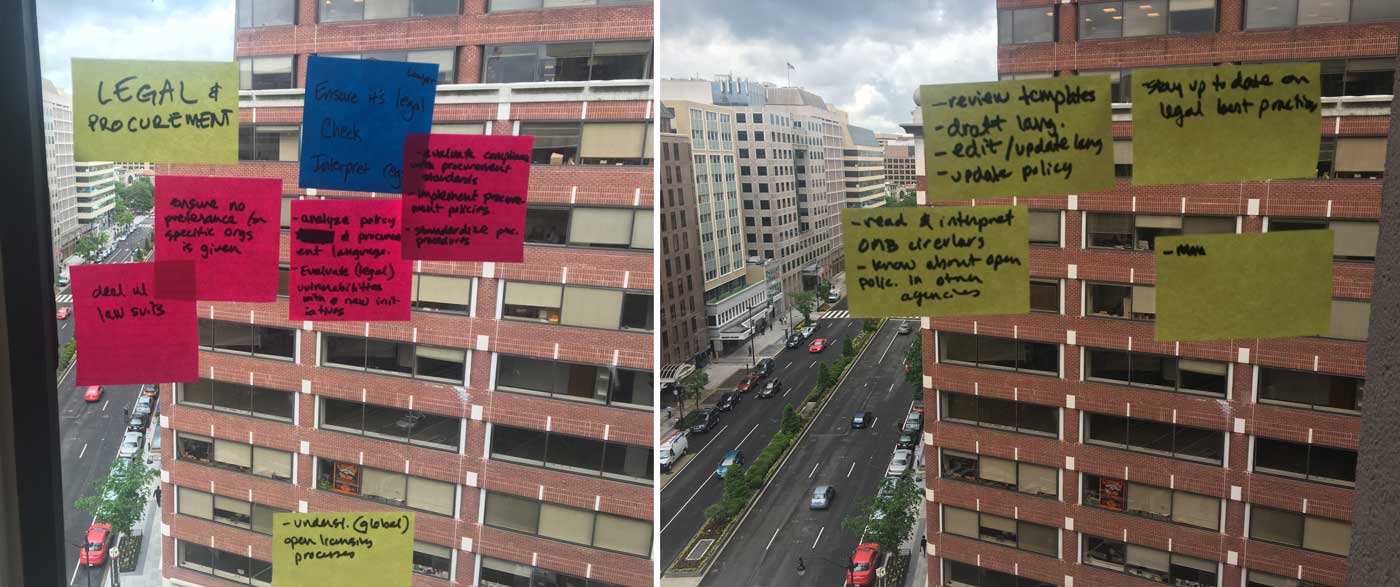 LEGAL &
PROCUREMENT
Lawyer
Ensure it's legal
Check
Interpret reg
- evaluate compliance
with procurement
standards
- implement procure-
ment policies
- standardize proc.
procedures
ensure no
preference for
specific orgs
is given
- analyse policy
& procurem
ent language.
- Evaluate (legal)
vulnerabilities
with a new init-
iatives
deal w/
law suits
- underst. (global)
open licensing
processes
- review templates
- draft lang
- edit/update lang
- update policy
stay up to date on
legal best practices
- read & interpret
OMB circulars
- know about open
polic. in other
agencies